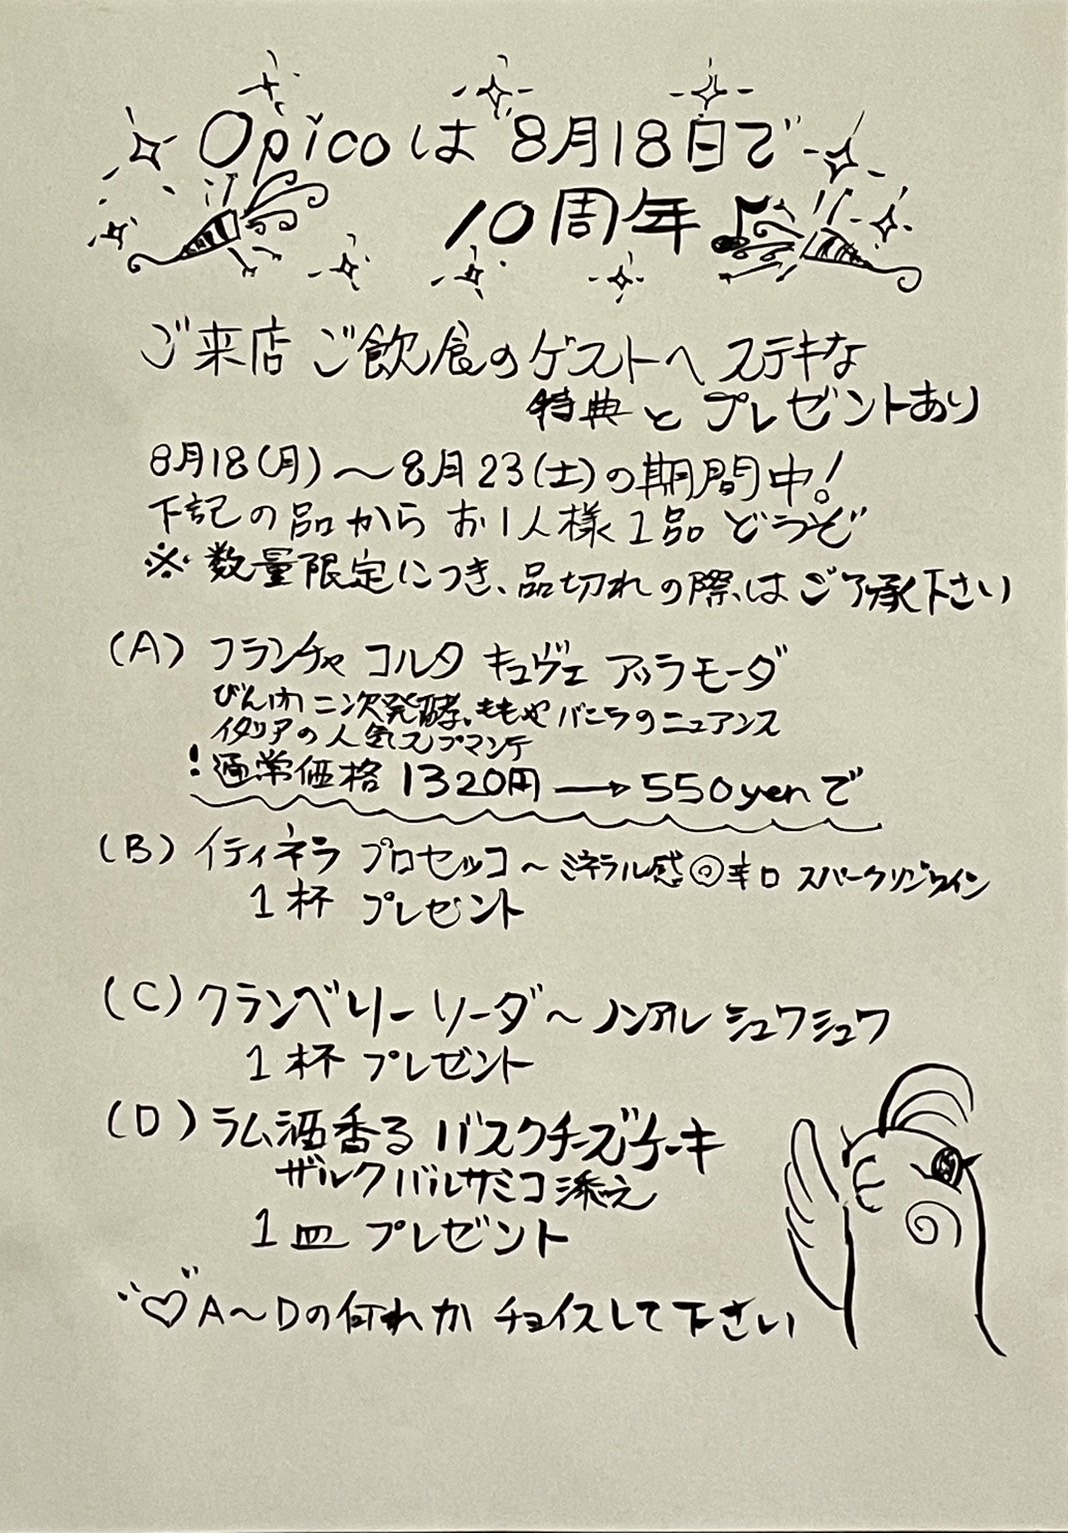 Opicoは8月18日で
10周年
ご来店 ご飲食のゲストへ ステキな
特典と プレゼントあり
8月18(月)〜8月23(土)の期間中!
下記の品から お1人様1品 どうぞ
※数量限定につき、品切れの際はご了承下さい
(A) フランチャ コルタ キュヴェ アッラモーダ
びん内二次発酵。ももやバニラのニュアンス
イタリアの人気スプマンテ
!通常価格 1320円→550yenで
(B) イティネラ プロセッコ〜ミネラル感◎辛口 スパークリングワイン
1杯 プレゼント
(C) クランベリーソーダ〜ノンアル シュワシュワ
1杯 プレゼント
(D) ラム酒香る バスクチーズケーキ
ザルクバルサミコ添え
1皿 プレゼント
♡A〜Dの何れか チョイスして下さい